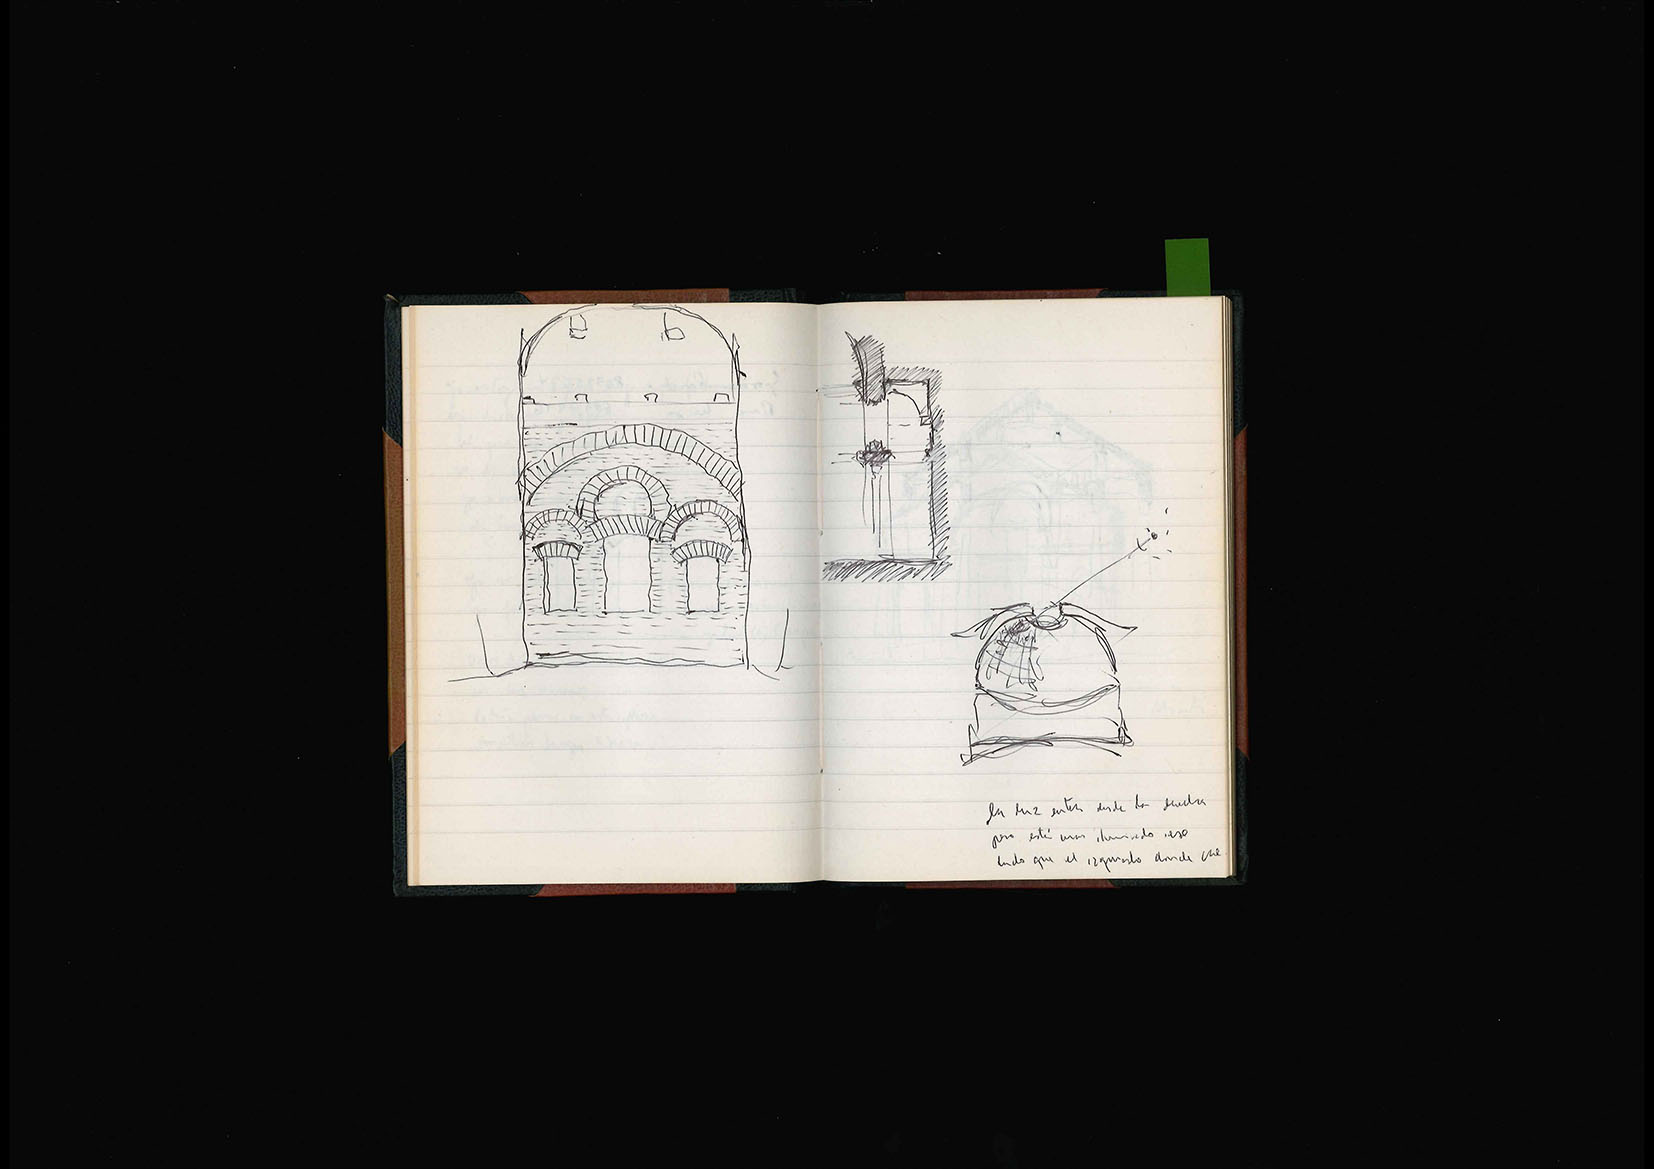 la luz entra desde la derecha
pero está mas iluminado ese
lado que el izquierdo donde cae